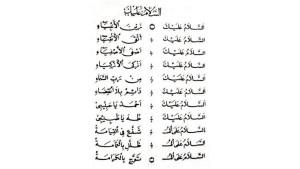 السلام عليك
السَّلَامُ عَلَيْكَ زَيْنَ الْأَنْبِيَاءِ
السَّلَامُ عَلَيْكَ أَتْقَى الْأَتْقِيَاءِ
السَّلَامُ عَلَيْكَ أَصْفَى الْأَصْفِيَاءِ
السَّلَامُ عَلَيْكَ أَزْكَى الْأَزْكِيَاءِ
السَّلَامُ عَلَيْكَ مِنْ رَبِّ السَّمَاءِ
السَّلَامُ عَلَيْكَ دَائِمْ بِلَا انْقِضَاءِ
السَّلَامُ عَلَيْكَ أَحْمَدْ يَا حَبِيبِي
السَّلَامُ عَلَيْكَ طٰهَ يَا طَبِيبِي
السَّلَامُ عَلَى الْمُشَفَّعْ فِي الْقِيَامَةِ
السَّلَامُ عَلَى الْمُظَلَّلْ بِالْغَمَامَةِ
السَّلَامُ عَلَى الْمُتَوَّجْ بِالْكَرَامَةِ